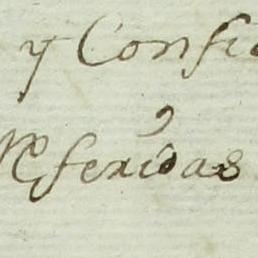 y Confi
Referidas